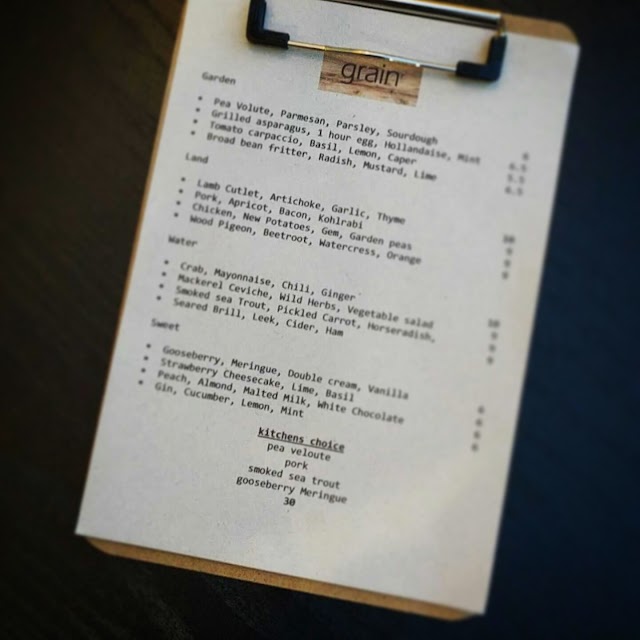 grain
Garden
Pea Volute, Parmesan, Parsley, Sourdough 6
Grilled asparagus, 1 hour egg, Hollandaise, Mint 6.5
Tomato carpaccio, Basil, Lemon, Caper 5.5
Broad bean fritter, Radish, Mustard, Lime 6.5
Land
Lamb Cutlet, Artichoke, Garlic, Thyme 10
Pork, Apricot, Bacon, Kohlrabi 9
Chicken, New Potatoes, Gem, Garden peas 9
Wood Pigeon, Beetroot, Watercress, Orange
Water
Crab, Mayonnaise, Chili, Ginger 10
Mackerel Ceviche, Wild Herbs, Vegetable salad 9
Smoked sea Trout, Pickled Carrot, Horseradish, 9
Seared Brill, Leek, Cider, Ham 9
Sweet
Gooseberry, Meringue, Double cream, Vanilla 6
Strawberry Cheesecake, Lime, Basil 6
Peach, Almond, Malted Milk, White Chocolate 6
Gin, Cucumber, Lemon, Mint 6
kitchens choice
pea veloute
pork
smoked sea trout
gooseberry Meringue
30